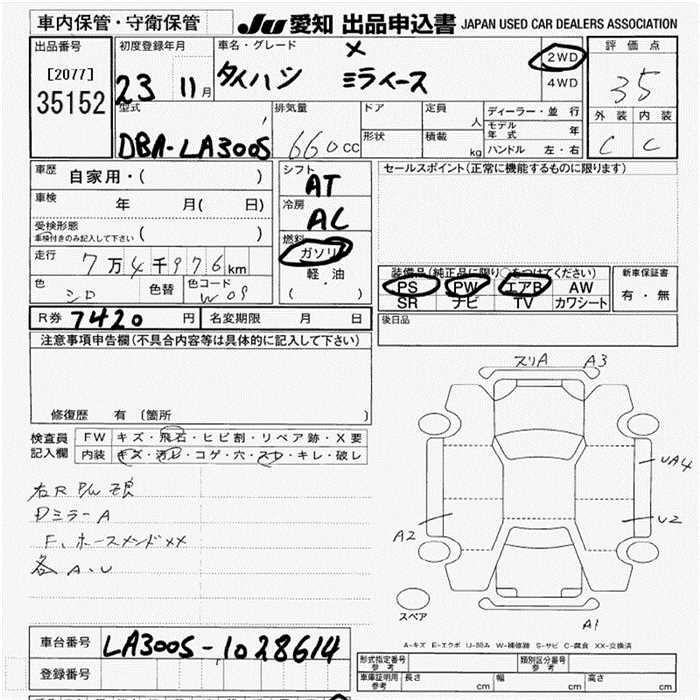 車内保管・守衛保管
JU 愛知 出品申込書 JAPAN USED CAR DEALERS ASSOCIATION
出品番号
[2077]
35152
初度登録年月
23 11月
車名・グレード
ダイハツ ミライース X
2WD
4WD
評価点
35
外装 内装
C C
型式
DBA-LA300S
排気量
660cc
ドア
形状
定員 人
積載 kg
ディーラー・並行
モデル年式 年
ハンドル 左・右
車歴 自家用・( )
車検 年 月( 日)
受検形態
車検付きのみ記入して下さい ( )
走行 7万4千976km
色 シロ 色替 色コード W09
シフト AT
冷房 AC
燃料 ガソリン
軽・油
( )
セールスポイント(正常に機能するものに限ります)
装備品(純正品に限り○をつけてください)
PS PW エアB AW
SR ナビ TV カワシート
新車保証書
有・無
R券 7420 円 名変期限 月 日
後日品
注意事項申告欄(不具合内容等は具体的に記入して下さい)
修復歴 有 〔箇所 〕
検査員記入欄
FW キズ・飛石・ヒビ割・リペア跡・X要
内装 キズ・汚レ・コゲ・穴・スレ・キレ・破レ
右R P/W 不良
Dミラー A
F、ホースメンドXX
各A・U
スリA A3
UA4
U2
A2
A1
スペア
A-キズ E-エクボ U-凹み W-補修跡 S-サビ C-腐食 XX-交換済
車台番号 LA300S-1028614
登録番号
形式指定番号 参考
類別区分番号 参考
車庫証明用 参考 長さ cm 幅 cm 高さ cm